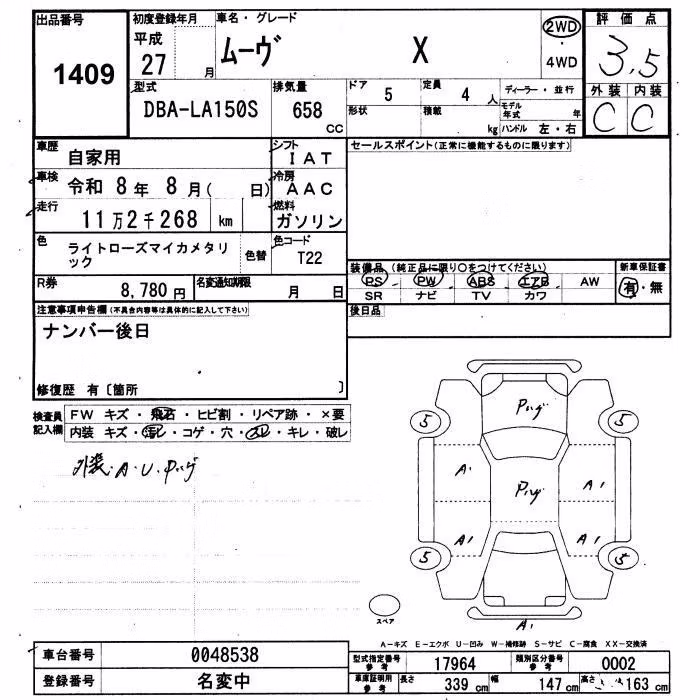 出品番号
1409
初度登録年月
平成
27 月
車名・グレード
ムーヴ X
2WD
・
4WD
評価点
3.5
外装 内装
C C
型式
DBA-LA150S
排気量
658
CC
ドア
5
定員
4 人
形状
積載
kg
ディーラー・並行
モデル
年式 年
ハンドル 左・右
車歴
自家用
シフト
IAT
車検
令和 8年 8月( 日)
冷房
AAC
走行
11万2千268 km
燃料
ガソリン
色
ライトローズマイカメタリ
ック
色替
色コード
T22
R券
8,780 円
名変通知期限
月 日
セールスポイント(正常に機能するものに限ります)
装備品 (純正品に限り〇をつけてください)
PS PW ABS エアB AW
SR ナビ TV カワ
新車保証書
有・無
後日品
注意事項申告欄(不具合内容等は具体的に記入して下さい)
ナンバー後日
修復歴 有〔箇所 〕
検査員
記入欄
FW キズ・飛石・ヒビ割・リペア跡・×要
内装 キズ・汚レ・コゲ・穴・スレ・キレ・破レ
外装・A・U・Pング
Pング
5 5
A1 Pング A1
A1 A1
5 5
スペア
A1
A-キズ E-エクボ U-凹み W-補修跡 S-サビ C-腐食 XX-交換済
車台番号
0048538
登録番号
名変中
型式指定番号
参考
17964
類別区分番号
参考
0002
車庫証明用
参考
長さ
339 cm
幅
147 cm
高さ
163 cm